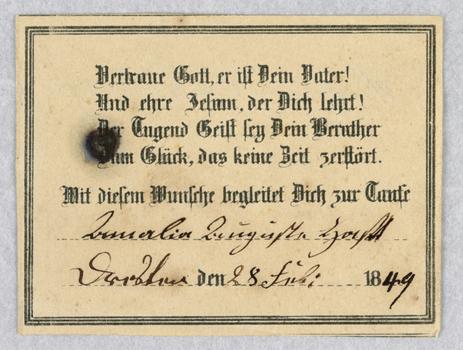 Vertraue Gott, er ist Dein Vater!
Und ehre Jesum, der Dich lehrt!
Der Tugend Geist sey Dein Berather
Zum Glück, das keine Zeit zerstört.
Mit diesem Wunsche begleitet Dich zur Taufe
Amalia Auguste
Dresden den 28 1849